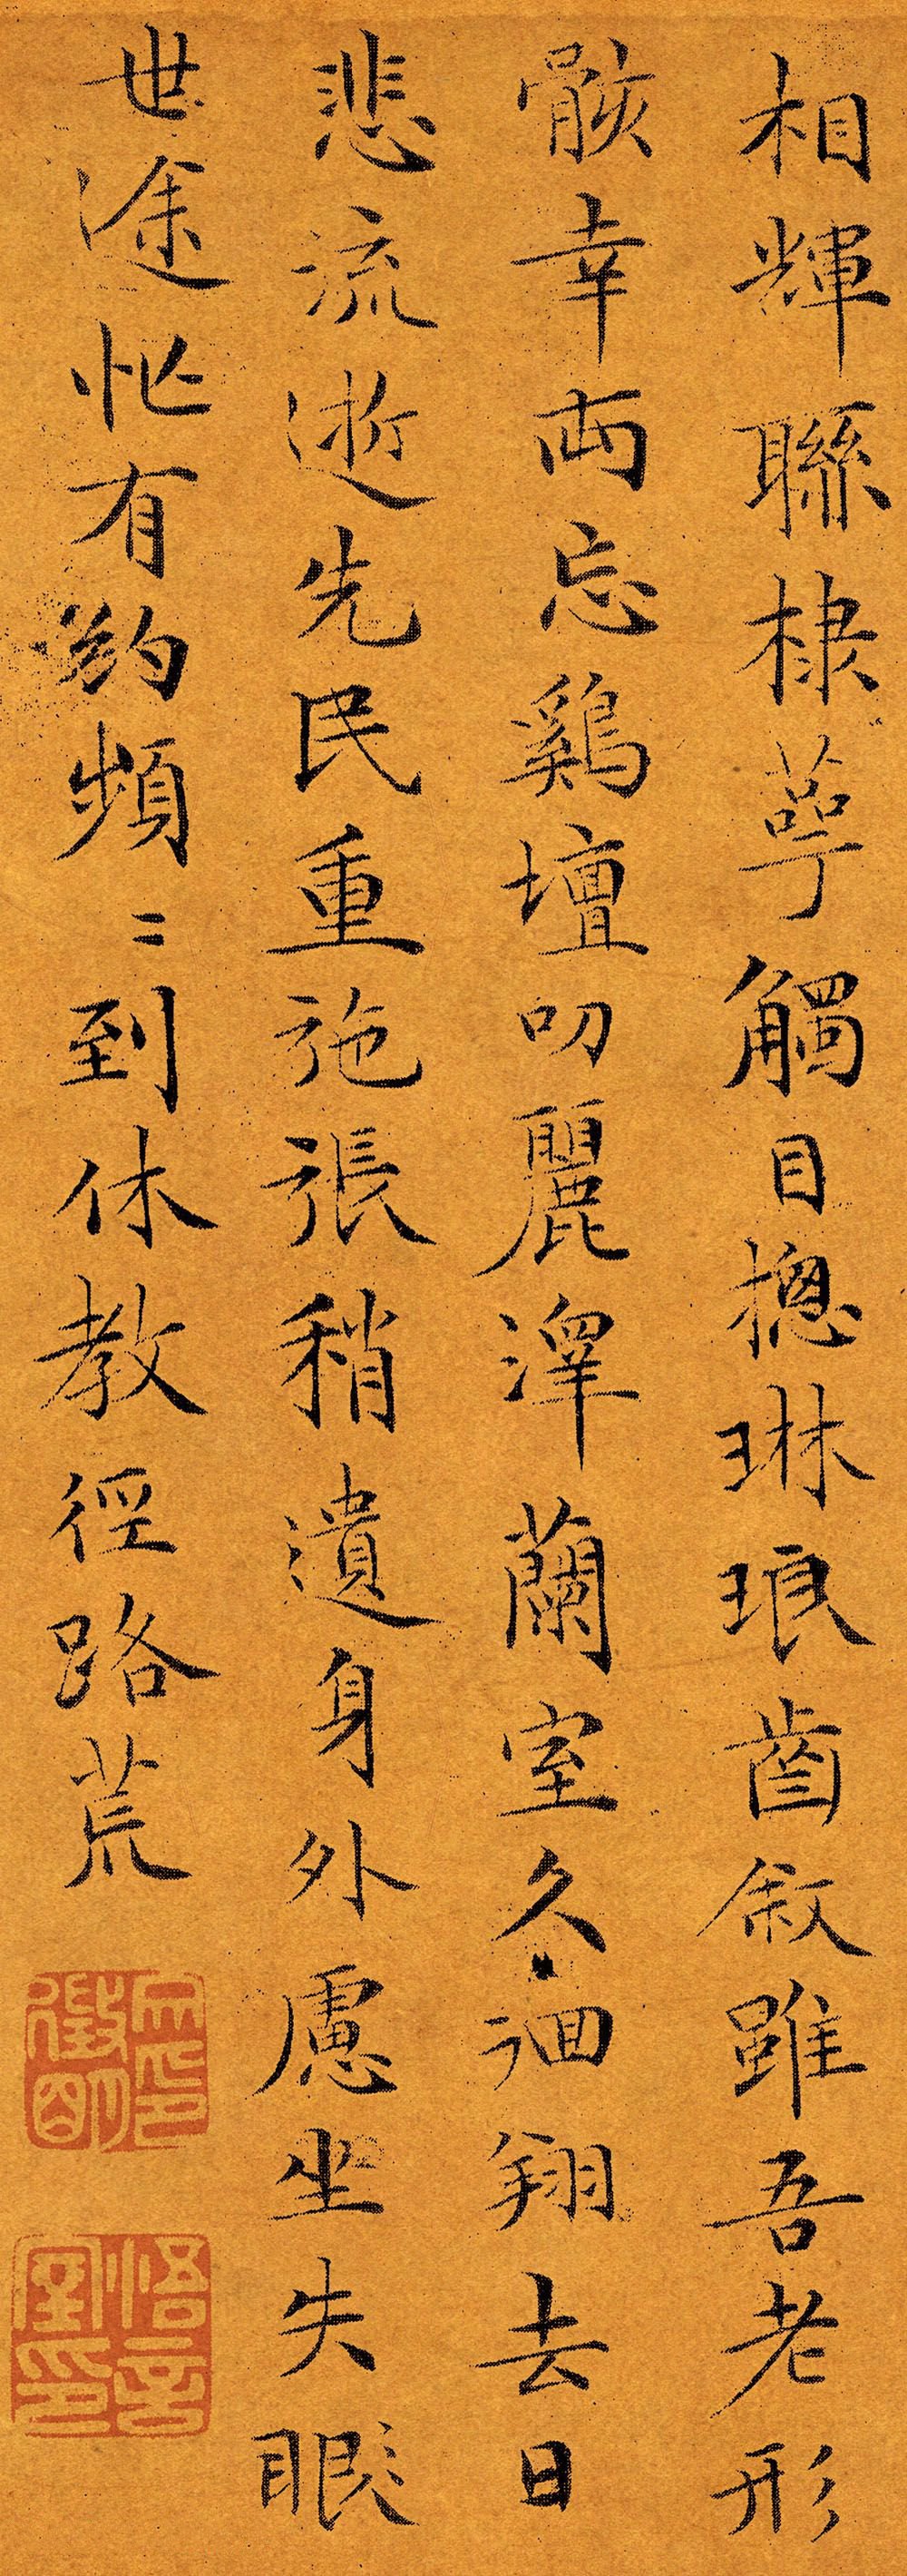 相輝聯棣萼觸目摠琳琅齒敘雖吾老形
骸幸両忘鷄壇叨麗澤蘭室久徊翔去日
悲流逝先民重施張稍遺身外慮坐失眼
世途忙有約頻〻到休教徑路荒
文徵明印
悟言室印